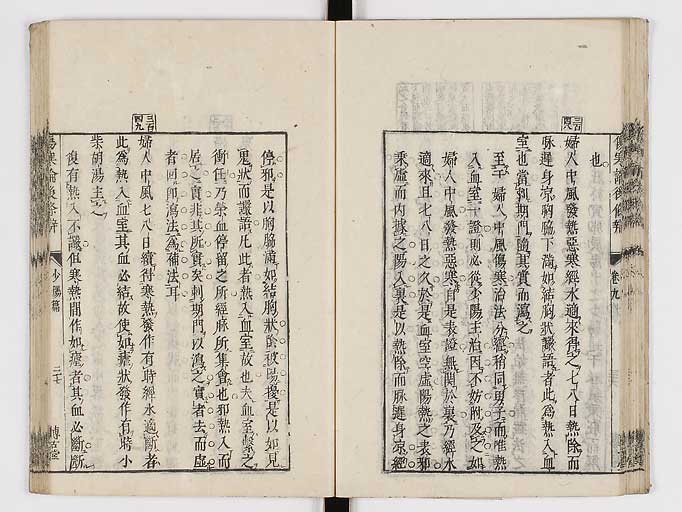 傷寒論後條辨 卷九
也
三百四八
婦人中風發熱惡寒經水適來得之七八日熱除而
脉遲身凉胸脇下滿如結胸狀讝語者此為熱入血
室也當刺期門隨其實而瀉之
至于婦人中風傷寒治法分經稍同男子而惟熱
入血室一證則必從少陽主治因不妨附及之如
婦人中風發熱惡寒自是表證無關於裏乃經水
適來且七八日之久於是血室空虛陽熱之表邪
乘虛而內據之陽入裏是以熱除而脉遲身凉經
停邪是以胸脇滿如結胸狀陰被陽擾是以如見
鬼狀而讝語凡此者熱入血室故也夫血室繫之
衝任乃榮血停留之所經脉所集會也邪熱入而
居之實非其所實矣刺期門以瀉之實者去而虛
者回即瀉法為補法耳
三百四九
婦人中風七八日續得寒熱發作有時經水適斷者
此為熱入血室其血必結故使如瘧狀發作有時小
柴胡湯主之
復有熱入不讝但寒熱間作如瘧者其血必斷斷
傷寒論後條辨 少陽篇 三七